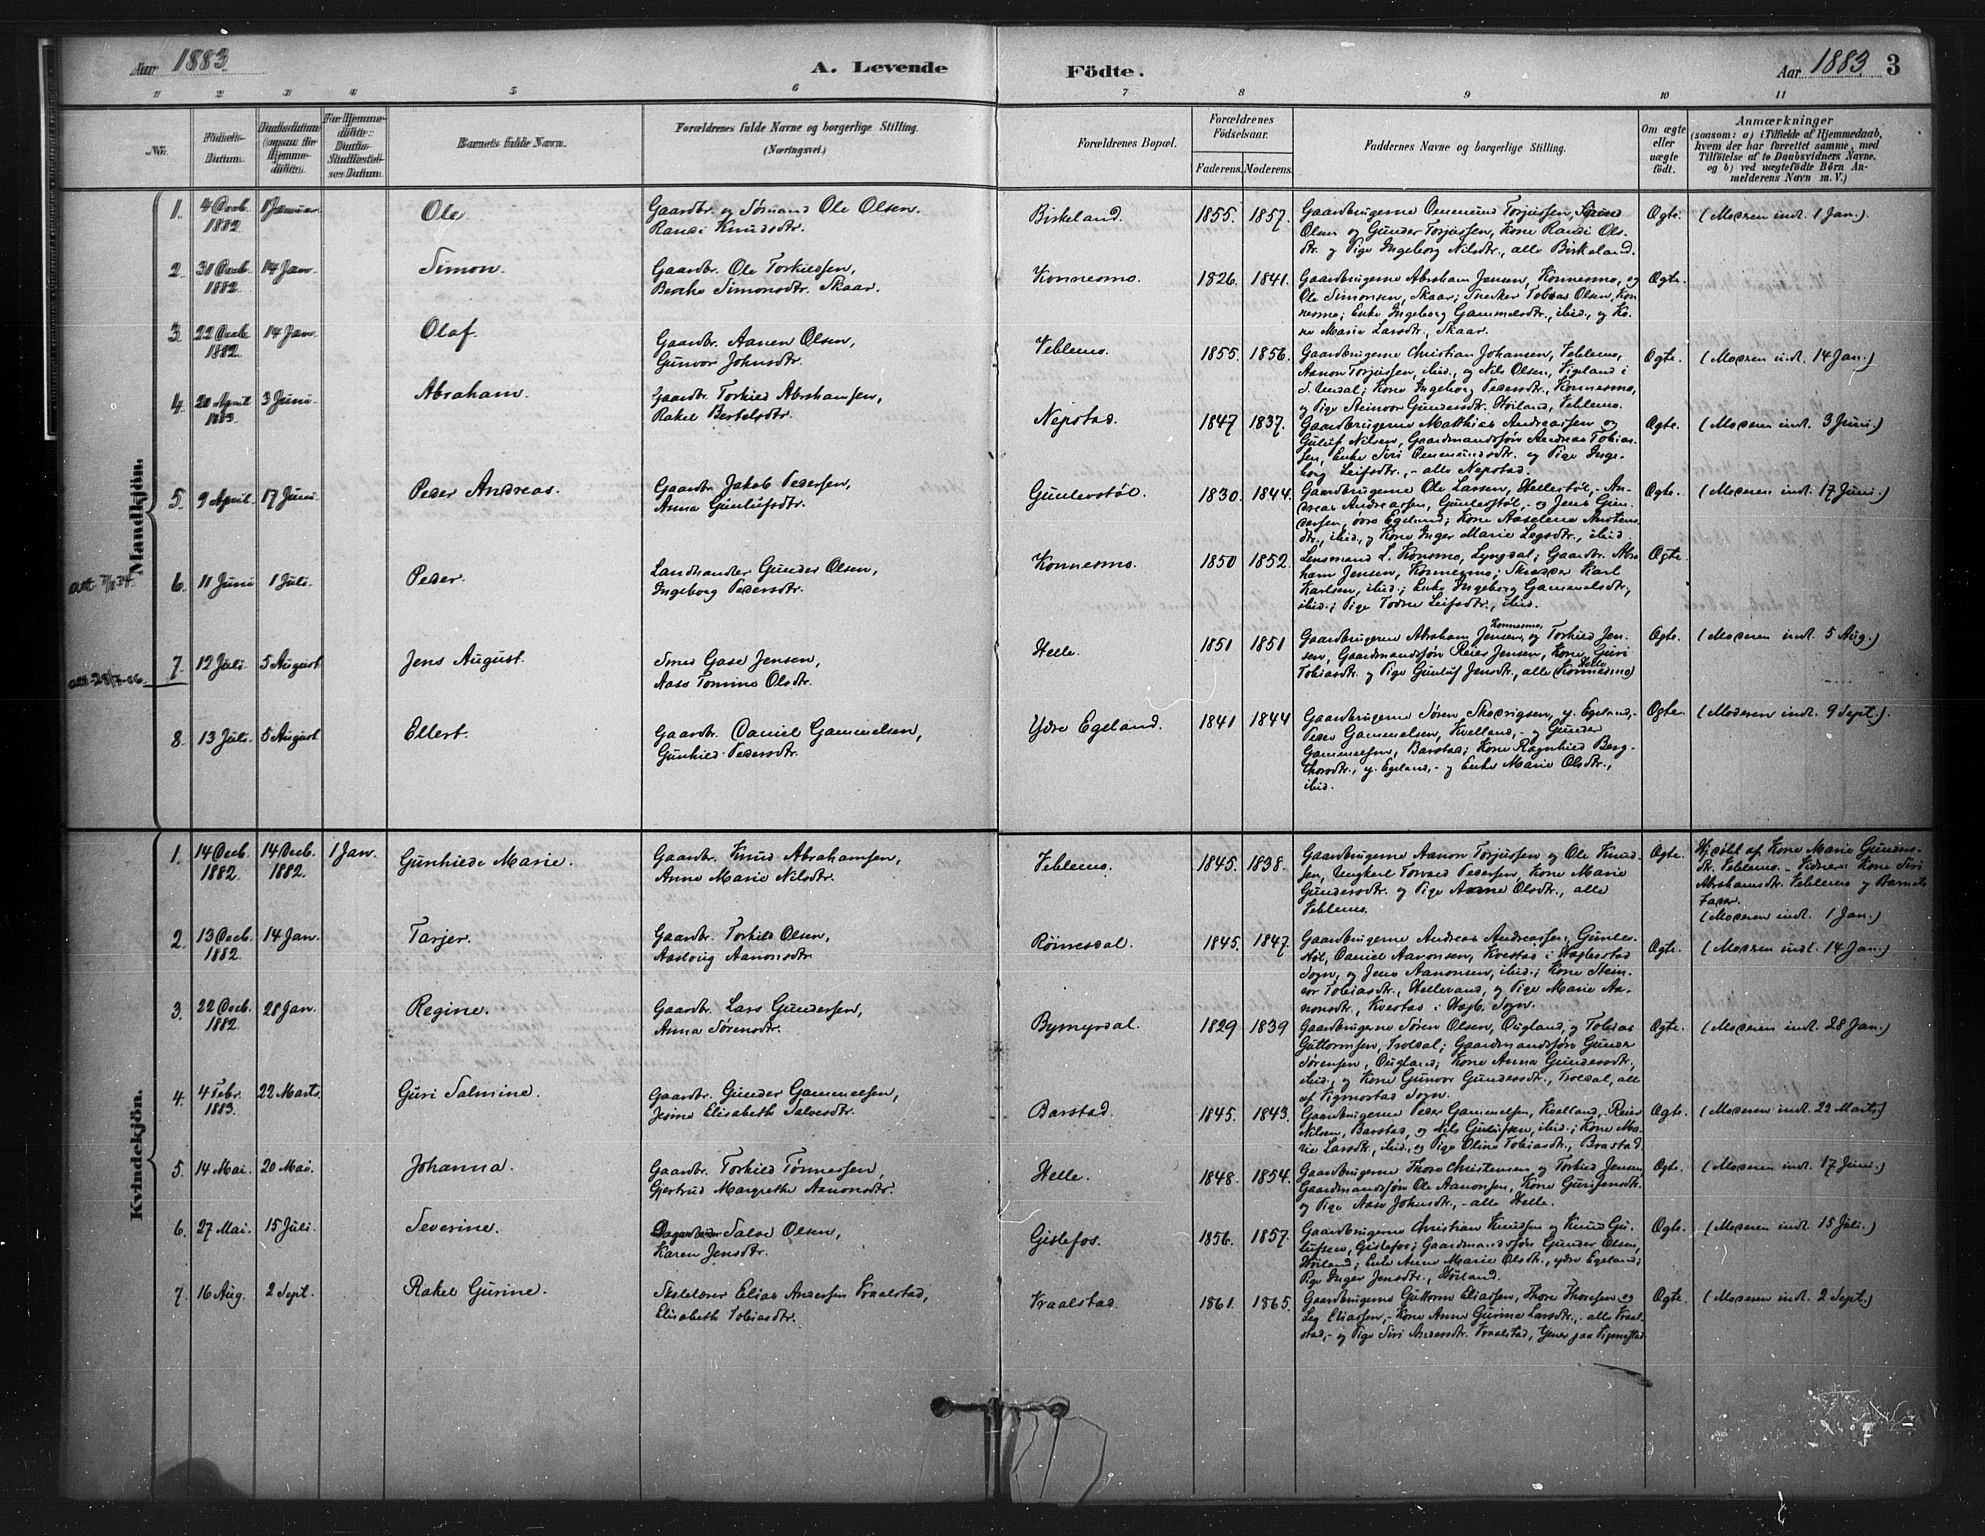 Aar 1883 A. Levende Födte. Aar 1883 3
1 2 3 4 5 6 7 8 9 10 11
No.
Födsels-Datum.
Daabsdatum (ogsaa for Hjemmedöbte).
For Hjemmedöbte: Daabs-Stadfæstelses Datum.
Barnets fulde Navn.
Forældrenes fulde Navne og borgerlige Stilling.
(Næringsvei.)
Forældrenes Bopæl.
Forældrenes Födselsaar.
Faderens. Moderens.
Faddernes Navne og borgerlige Stilling.
Om ægte eller uægte födt.
Anmærkninger
(saasom: a) i Tilfælde af Hjemmedaab,
hvem der har forrettet samme, med
Tilföielse af to Daabsvidners Navne,
og b) ved uægtefödte Börn An-
melderens Navn m. V.)
Mandkjön.
1. 4 Decb. 1882 1 Januar Ole
Gaardbr. og Sømand Ole Olsen.
Randi Knudsdtr.
Birkeland. 1855. 1857.
Gaardbrugerne Ommund Torjussen,
Olsen og Gunder Torjussen, Kone Randi Ols-
dtr. og Pige Ingeborg Nilsdtr., alle Birkeland.
Ægte. (Moderen indl. 1 Jan.)
2. 31 Decb. 1882 14 Jan. Simon.
Gaardbr. Ole Torkildsen,
Berthe Simonsdtr. Skaar.
Konnesmo. 1826. 1841.
Gaardbrugerne Abraham Jensen, Konnesmo, og
Ole Simonsen, Skaar; Snedker Tobias Olsen, Kon
nesmo; Enke Ingeborg Gammelsdtr., ibid., og Ko-
ne Marie Larsdtr., Skaar.
Ægte.
3. 22 Decb. 1882 14 Jan. Olaf.
Gaardbr. Aanen Olsen,
Gunvor Johnsdtr.
Veblemo. 1855. 1856.
Gaardbrugerne Christian Johansen, Veblemo,
Aanon Torjussen, ibid., og Nils Olsen, Vigeland i
S. Undal; Kone Ingeborg Pedersdtr., Konnesmo,
og Pige Steinvor Gundersdtr. Høiland, Veblemo.
Ægte. (Moderen indl. 14 Jan.)
4. 20 April 1883 3 Juni. Abraham.
Gaardbr. Torkild Abrahamsen,
Rakel Bertelsdtr.
Nepstad. 1847 1837.
Gaardbrugerne Matthias Andreassen og
Guluf Nilsen, Gaardmandssøn Andreas Tobias-
sen, Enke Siri Ommundsdtr. og Pige Inge-
borg Leifsdtr., - alle Nepstad.
Ægte. (Moderen indl. 3 Juni.)
5 9 April. 17 Juni Peder Andreas.
Gaardbr. Jakob Pedersen,
Anna Gunlufsdtr.
Gunlevstøl. 1830. 1844.
Gaardbrugerne Ole Larsen, Hellestøl, - An-
dreas Andreassen, Gunlevstøl, - og Jens Gun-
dersen, øvre Egeland; Kone Aaselene Austens-
dtr., ibid., og Kone Inger Marie Legsdtr., ibid.
Ægte. (Moderen indl. 17 Juni.)
6. 11 Juni 1 Juli. Peder.
Landhandler Gunder Olsen,
Ingeborg Pedersdtr.
Konnesmo. 1850 1852.
Lensmand L. Konsmo, Lyngdal; Gaardbr. Abra
ham Jensen, Konnesmo; Skræder Karl
Karlsen, ibid.; Enke Ingeborg Gammelsdtr.,
ibid.; Pige Todne Leifsdtr., ibid.
Ægte.
att. 28/7-06.
7. 12 Juli. 5 August Jens August.
Smed Gase Jensen,
Aase Tomine Olsdtr.
Helle. 1851 1851
Gaardbrugerne Abraham Jensen, Konnesmo, og Torkild Jen-
sen, Gaardmandssøn Reier Jensen, Kone Guri
Tobiasdtr. og Pige Gunluf Jensdtr., alle Helle (Konnesmo)
Ægte. (Moderen indl. 5 Aug.)
8. 13 Juli. 5 August Ellert.
Gaardbr. Daniel Gammelsen,
Gunhild Pedersdtr.
Ydre Egeland. 1841 1844
Gaardbrugerne Søren Skovrigsen, y. Egeland, -
Peder Gammelsen, Kvelland, - og Gunder
Gammelsen, Barstad; Kone Ragnhild Berg-
thorsdtr., y. Egeland, - og Enke Marie Olsdtr.,
ibid.
Ægte. (Moderen indl. 9 Sept.).
Kvindekjön.
1. 14 Decb. 1882 14 Decb. 1882. 1 Jan. Gunhilde Marie.
Gaardbr. Knud Abrahamsen,
Anne Marie Nilsdtr.
Veblemo. 1845. 1838.
Gaardbrugerne Aanon Torjussen og Ole Knud-
sen, Ungkarl Torvald Pedersen, Kone Marie
Gundersdtr. og Pige Anne Olsdtr., alle
Veblemo.
Ægte. Hj.døbt af Kone Marie Gunders-
dtr. Veblemo. - Vidner: Kone Siri
Abrahamsdtr. Veblemo og Barnets
Fader.
(Moderen indl. 1 Jan.)
2. 13 Decb. 1882 14 Jan. Tarjer.
Gaardbr. Torkild Olsen,
Aaslaug Aanonsdtr.
Röinesdal. 1845. 1847.
Gaardbrugerne Andreas Andreassen, Gunlev-
støl, Daniel Aanonsen, Kvestad i Hægbostad
Sogn, og Jens Aanonsen, ibid.; Kone Stein-
vor Tobiasdtr., Hellevand, og Pige Marie Aa-
nonsdtr., Kvestad i Hægb. Sogn.
Ægte. (Moderen indl. 14 Jan.)
3. 22 Decb. 1882 28 Jan. Regine.
Gaardbr. Lars Gundersen,
Anna Sørensdtr.
Bymyrdal. 1829 1839
Gaardbrugerne Søren Olsen, Øugland, og Tobias
Guttormsen, Troldal; Gaardmandssøn Gunder
Sørensen, Øugland; Kone Anna Gundersdtr.,
ibid., og Kone Gunvor Gundersdtr., Troldal, alle
af Vigmostad Sogn.
Ægte. (Moderen indl. 28 Jan.)
4. 4 Febr. 1883. 22 Marts. Guri Salmine.
Gaardbr. Gunder Gammelsen,
Elisabeth Salvesdtr.
Barstad. 1845. 1843.
Gaardbrugerne Peder Gammelsen, Kvelland, Reier
Nilsen, Barstad, og Nils Gulufsen, ibid.; Kone Ma-
rie Larsdtr., ibid., og Pige Oline Tobiasdtr., Brastad.
Ægte. (Moderen indl. 22 Marts)
5. 14 Mai. 20 Mai. Johanna.
Gaardbr. Torkild Tønnessen,
Gjertrud Margrethe Aanonsdtr.
Helle. 1848. 1854.
Gaardbrugerne Thore Christensen og Torkild Jensen,
Gaardmandssøn Ole Aanonsen, Kone Guri Jensdtr.
og Pige Aase Johnsdtr., - alle Helle.
Ægte. (Moderen indl. 17 Juni.)
6. 27 Mai. 15 Juli. Severine.
Salve Olsen,
Karen Jensdtr.
Gislefos. 1856. 1857.
Gaardbrugerne Christian Knudsen og Knud Gu-
lufsen, Gislefos; Gaardmandssøn Gunder Olsen,
Høiland; Enke Anne Marie Olsdtr., ydre Egeland;
Pige Inger Jensdtr., Høiland.
Ægte. (Moderen indl. 15 Juli.)
7. 16 Aug. 2 Sept. Rakel Gurine.
Skolelærer Elias Andersen Vraalstad,
Elisabeth Tobiasdtr.
Vraalstad. 1861. 1865.
Gaardbrugerne Guttorm Eliassen, Thore Thoresen og
Leg Eliassen, - Kone Anne Gurine Larsdtr., - alle Vraal-
stad, - og Pige Siri Andersdtr. Vraalstad, tjener paa Vigmostad
Ægte. (Moderen indl. 2 Sept.)